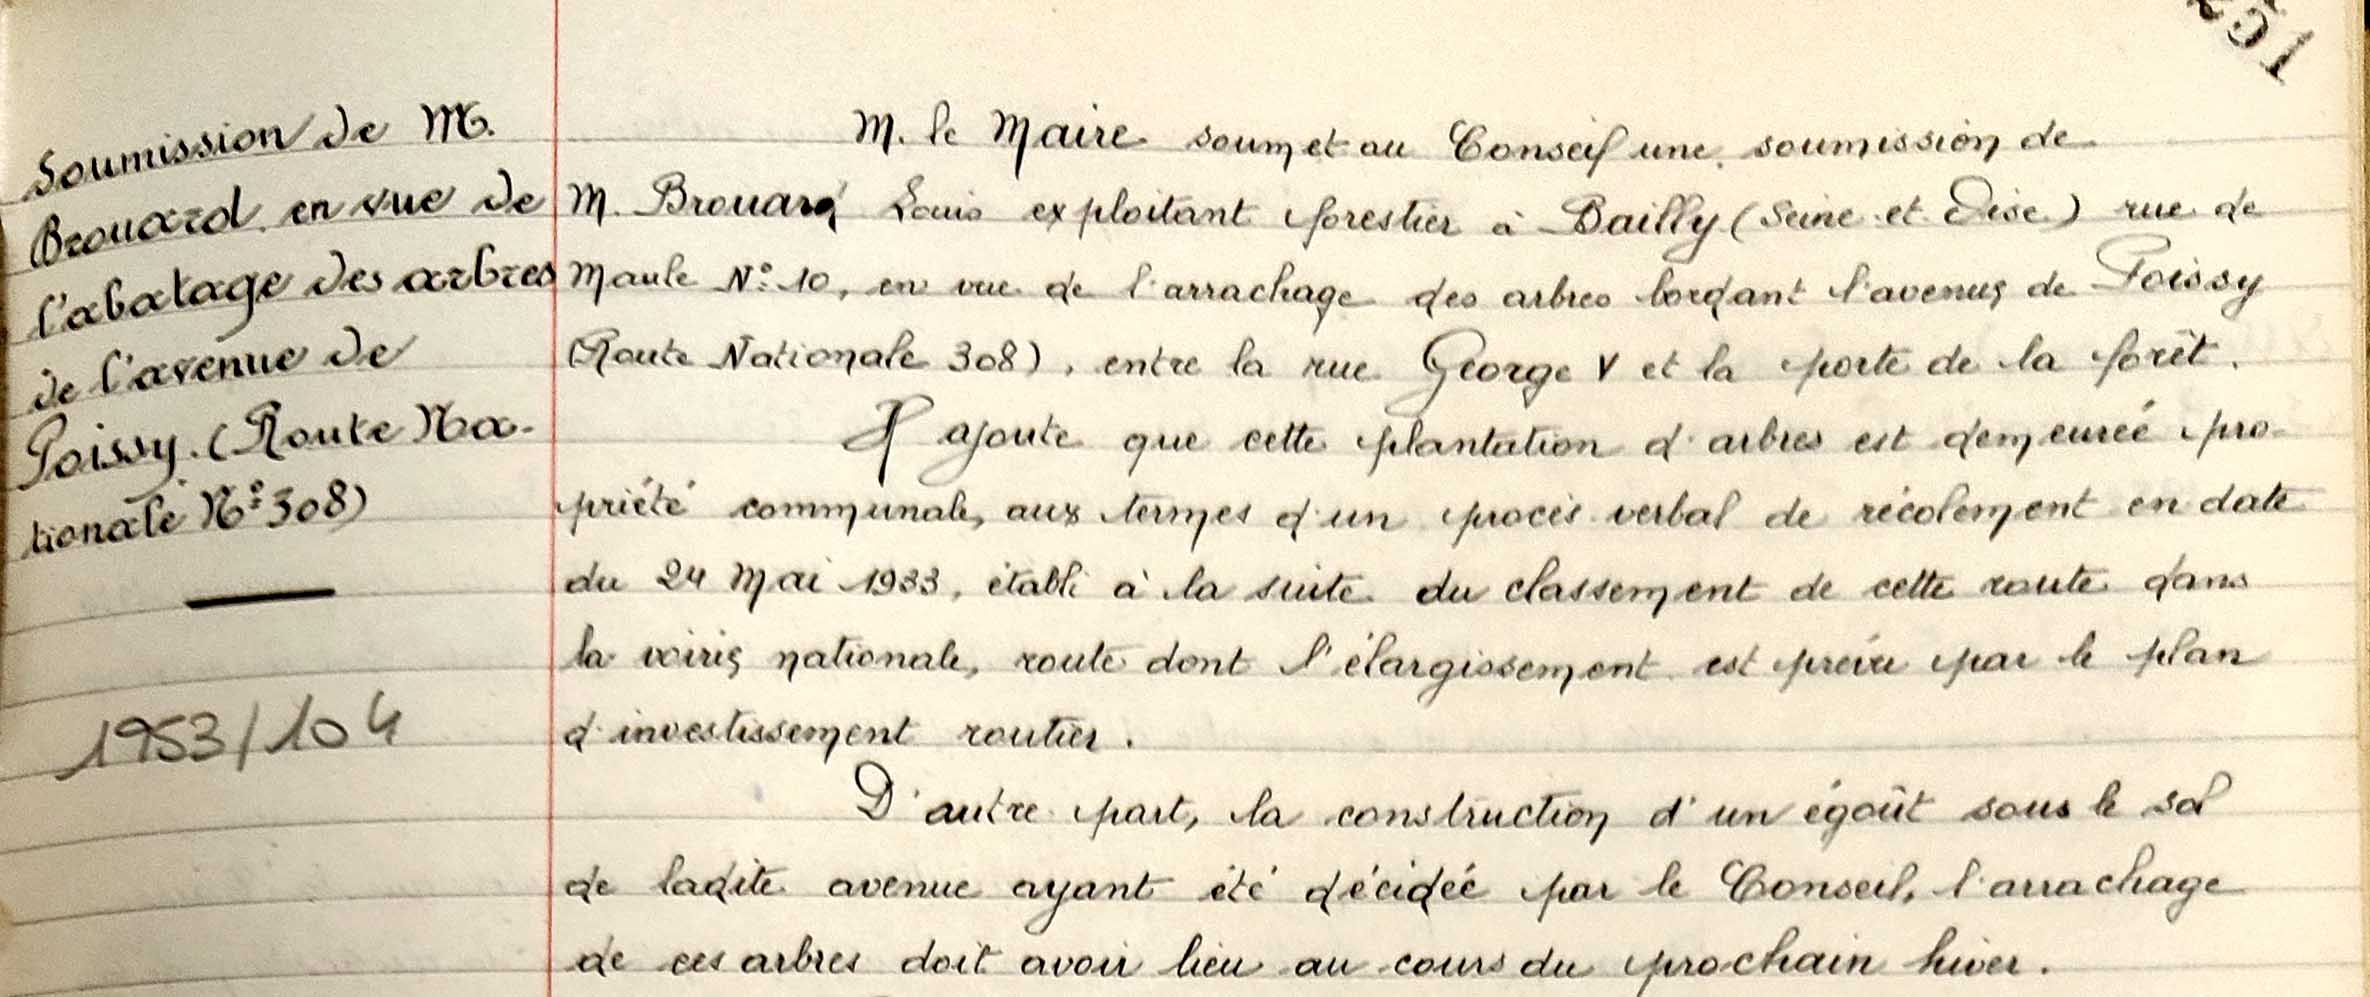 251
Soumission de M.
Brouard en vue de
l'abatage des arbres
de l'avenue de
Poissy. (Route Na-
tionale N° 308)
1953/104
M. le Maire soumet au Conseil une soumission de
M. Brouard Louis exploitant forestier à Bailly (Seine et Oise) rue de
Maule N° 10, en vue de l'arrachage des arbres bordant l'avenue de Poissy
(Route Nationale 308), entre la rue George V et la porte de la forêt.
Il ajoute que cette plantation d'arbres est demeurée pro-
priété communale, aux termes d'un procès verbal de récolement en date
du 24 Mai 1933, établi à la suite du classement de cette route dans
la voirie nationale, route dont l'élargissement est prévu par le plan
d'investissement routier.
D'autre part, la construction d'un égoût sous le sol
de ladite avenue ayant été décidée par le Conseil, l'arrachage
de ces arbres doit avoir lieu au cours du prochain hiver.